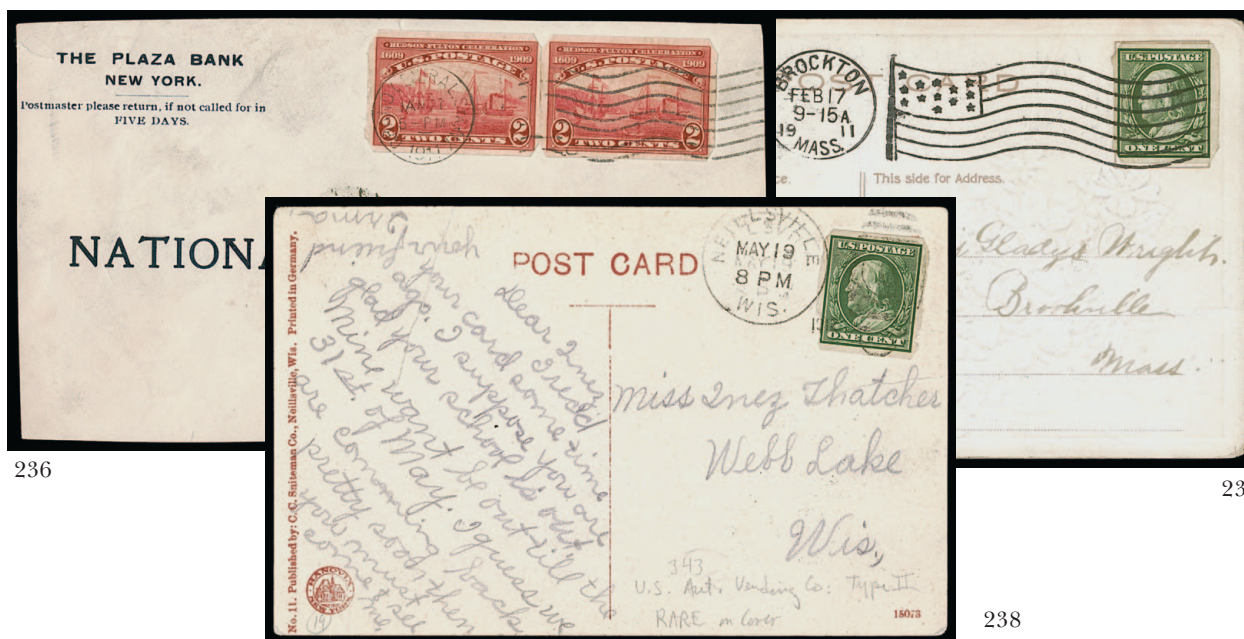 THE PLAZA BANK
NEW YORK.
Postmaster please return, if not called for in
FIVE DAYS.
HUDSON-FULTON CELEBRATION
1609 1909
U.S. POSTAGE
2 TWO CENTS 2
HUDSON-FULTON CELEBRATION
1609 1909
U.S. POSTAGE
2 TWO CENTS 2
1911
NATION
236
BROCKTON
FEB 17
9-15A
19 11
MASS.
POST CARD
U.S. POSTAGE
ONE CENT
ce.
This side for Address.
Gladys Wright.
Brookville
Mass.
23
No. 11. Published by: C.C. Sniteman Co., Neillsville, Wis. Printed in Germany.
POST CARD
NEILLSVILLE
MAY 19
8 PM
WIS.
U.S. POSTAGE
ONE CENT
Dear Inez
I recd
your card some time
ago. I suppose you are
glad your school is out
Mine want be out till the
31st. of May. I guess we
are comming back
pretty soon, then
you must
come & see
me
Your friend
Miss Inez Thatcher
Webb Lake
Wis,
343
U.S. Aut. Vending Co: Type II
RARE on Cover
HANOVIA
NEW YORK
19
18073
238